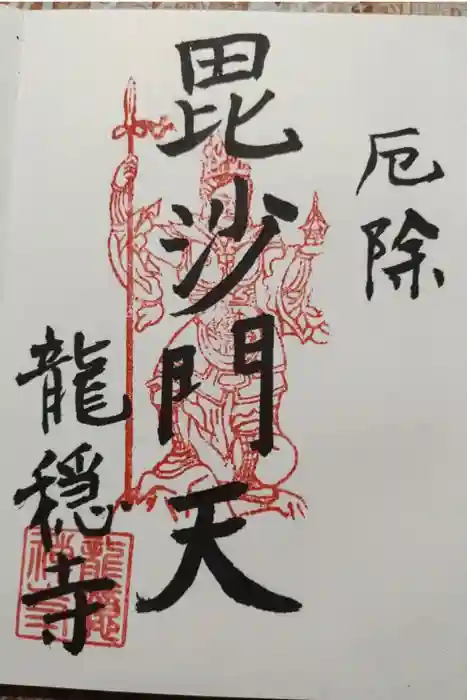 厄除
毘沙門天
龍穏寺